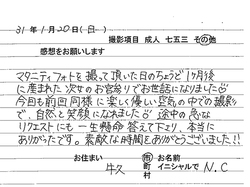 31年1月20日(日) 撮影項目 成人 七五三 その他
感想をお願いします
マタニティフォトを撮って頂いた日のちょうど1ヶ月後
に産まれた次女のお宮参りでお世話になりました
今回も前回同様に楽しく優しい空気の中での撮影
で、自然と笑顔になれました 途中の急な
リクエストにも一生懸命答えて下さり、本当に
ありがたかったです。素敵な時間をありがとうございました!!
お住まい 牛久 市町村 お名前 イニシャルで N.C